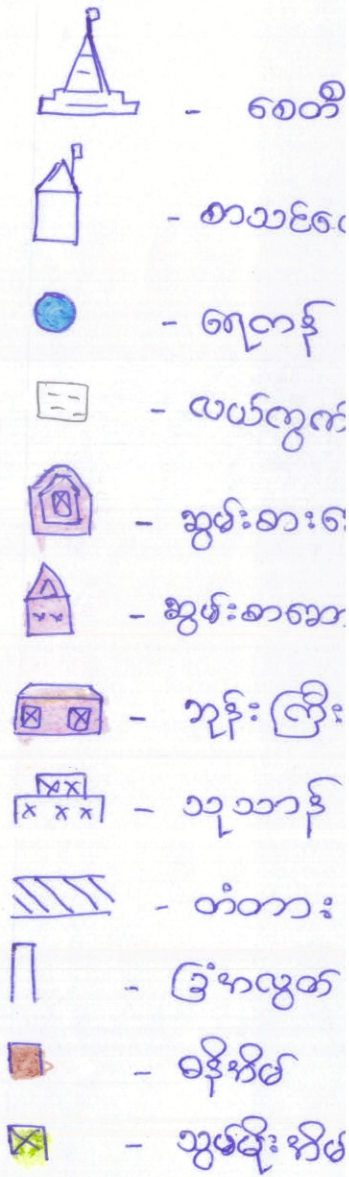 - စေတီ
- စာသင်
- ရေကန်
- လယ်ကွက်
- ဆွမ်းစား
- ဆွမ်းစာ
- ဘုန်းကြီး
- သုသာန်
- တံတား
- ခြံအလွတ်
- ဓနိအိမ်
- သွပ်မိုးအိမ်